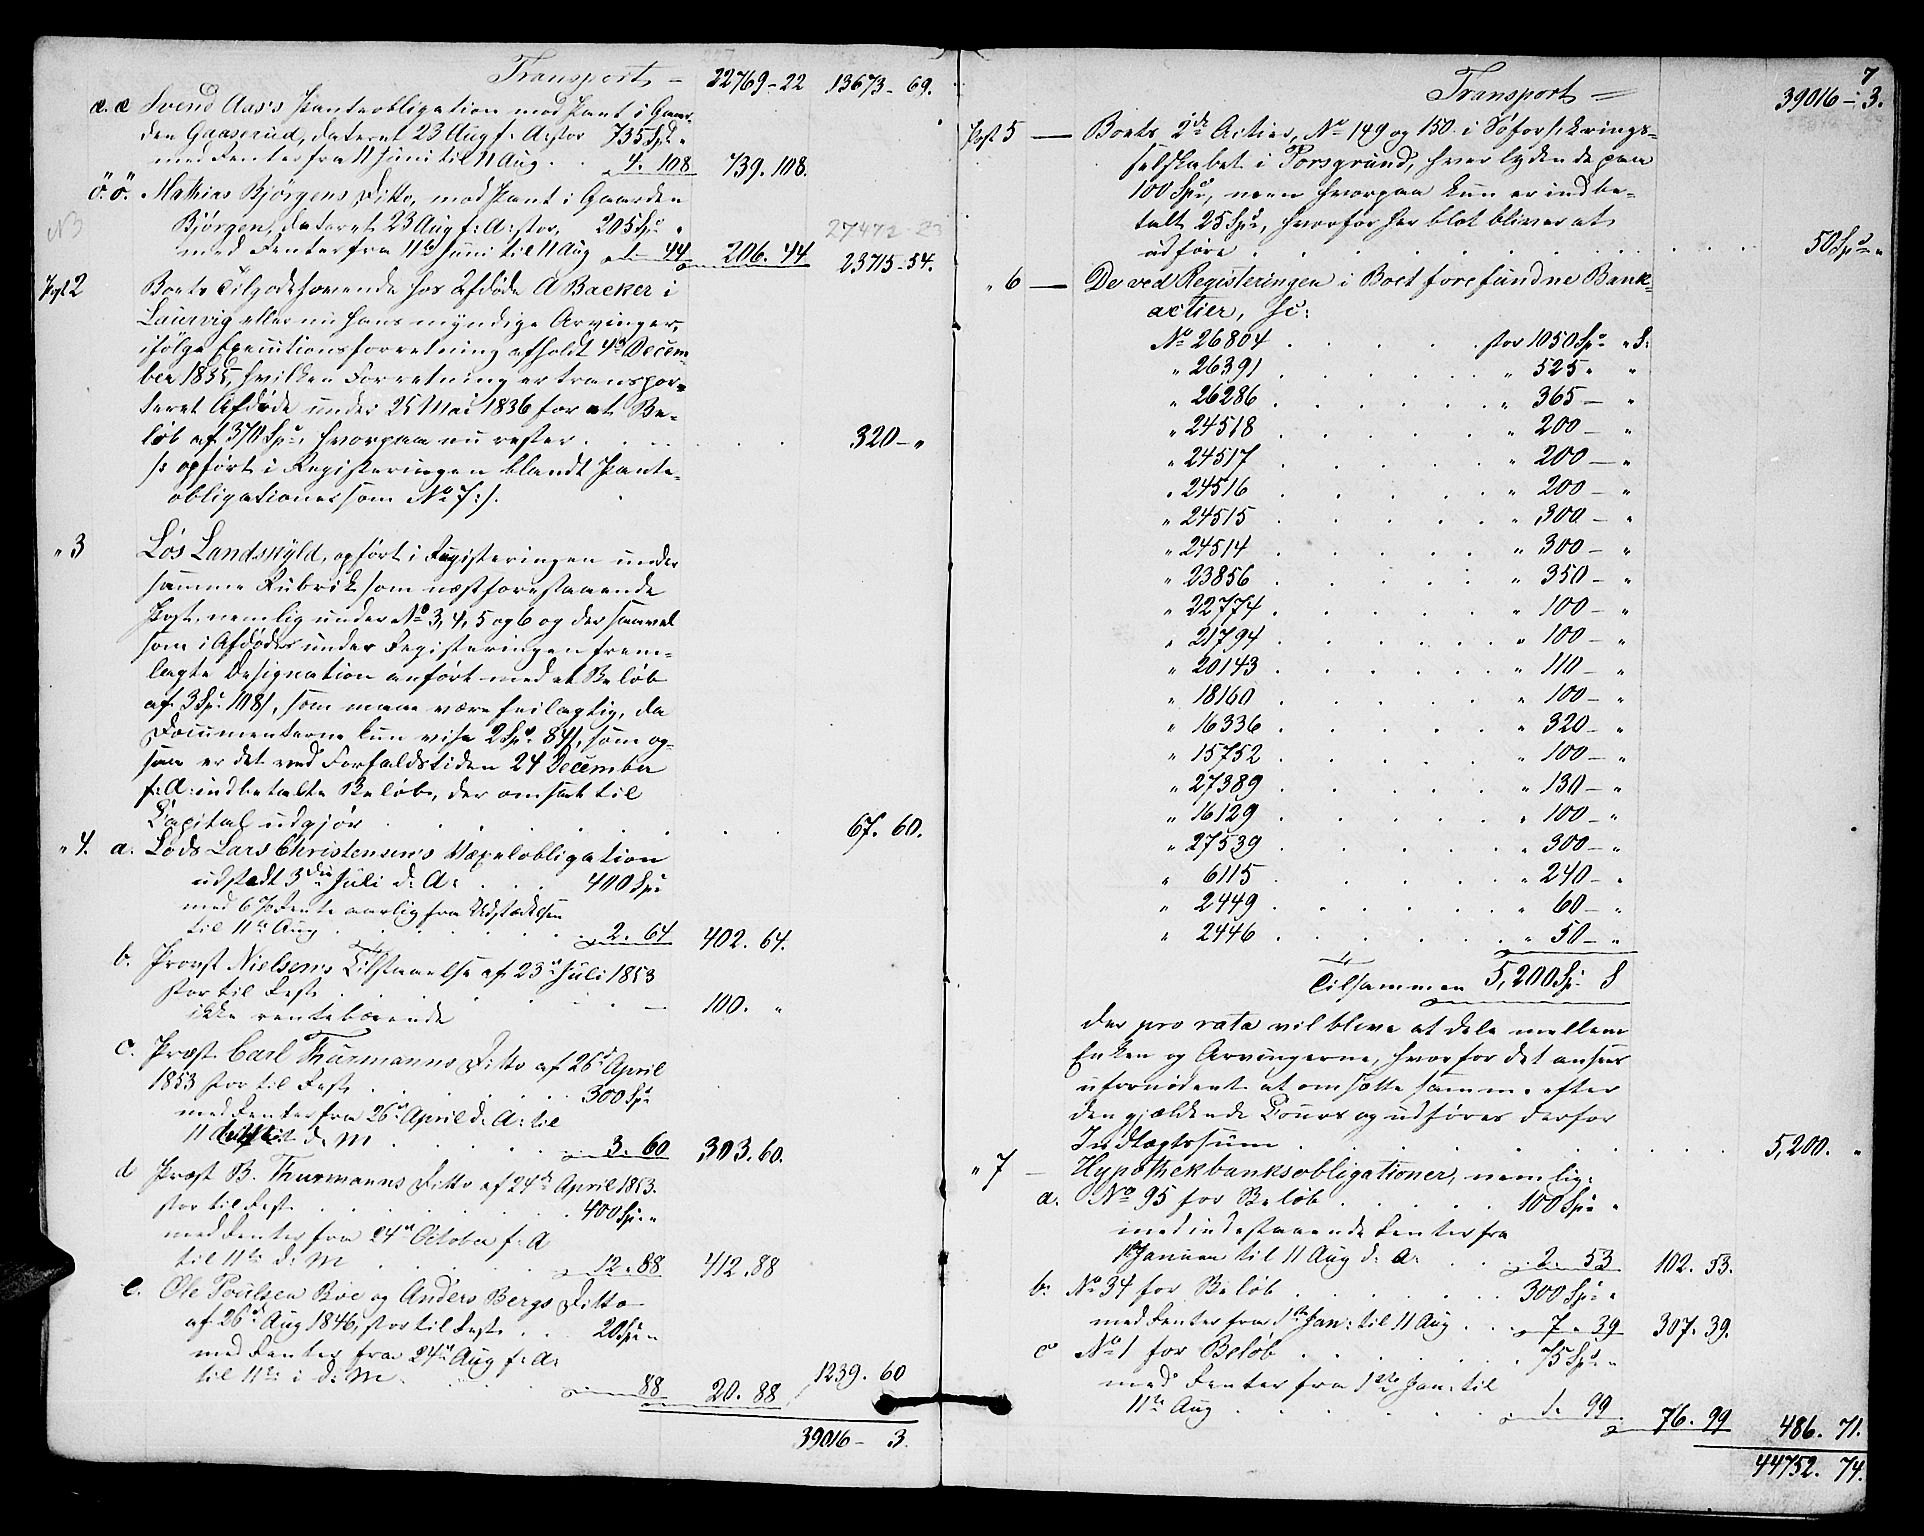 Transport - 22769-22 13673-69.
æ.æ Svend Aas's Panteobligation med Pant i Gaar-
den Gaaserud, dateret 23 Aug f: A: stor 735 Spd "
med Renter fra 11 Juni til 11 Aug . . 4. 108 739. 108.
ö.ö. Mathias Bjørgens Ditto, med Pant i Gaarden
Bjørgen, dateret 23 Aug f: A: stor, 205 Spd "
27472-23
med Renter fra 11te Juni til 11 Aug 1- 44 206. 44 23715-54.
Post 2 Boets Tilgodehavende hos Afdøde A Backer i
Laurvig eller nu hans myndige Arvinger,
ifølge Executionsforretning afholdt 4de Decem-
ber 1835, hvilken Forretning er transpor-
teret Afdøde under 25 Mai 1836 for et Be-
løb af 370 Spd, hvorpaa nu rester . . . 320-"
/: opført i Registeringen blandt Pante-
obligationer som No 7:/.
" 3 Løs Landskyld, opført i Registeringen under
samme Rubrik som næstforestaaende
Post, nemlig under No 3, 4, 5 og 6 og der saavel
som i Afdødes under Registeringen frem-
lagte Designation anført med et Beløb
af 3 Spd 108 s, som maae være feilagtig, da
Documenterne kun vise 2 Spd 84 s, som og-
saa er det ved Forfaldstiden 24 December
f: A: indbetalte Beløb, der omsat til
Capital udgjør . . . 67. 60.
" 4. a. Lods Lars Christensens Vexelobligation
udstedt 3die Juli d: A: . . 400 Spd
med 6 % Rente aarlig fra Udstedelsen
til 11te Aug . . . 2. 64 402. 64.
b. Provst Nielsens Tilstaaelse af 23d Juli 1853
stor til Rest . . .
ikke rentebærende - 100. "
c. Præst Carl Thurmanns Ditto af 26d April
1853 stor til Rest . . . 300 Spd
med Renter fra 26d April d: A: til
11 d: M . . . 3. 60 303. 60.
d Præst B. Thurmanns Ditto af 24de April 1853.
stor til Rest . . . 400 Spd "
med Renter fra 24de October f: A
til 11te d: M . . . 12. 88 412. 88
e. Ole Poulsen Boe og Anders Bergs Ditto
af 26d Aug 1846, stor til Rest . . 20 Spd "
med Renter fra 24de Aug f: A:
til 11te i d: M . . . 88 20. 88 1239. 60
39016- 3.
7
Transport = 39016- 3.
Post 5 - Boets 2de Actier, No 149 og 150 i Søforsikrings-
selskabet i Porsgrund, hver lydende paa
100 Spd, men hvorpaa kun er indbe-
talt 25 Spd, hvorfor her blot bliver at
udføre . . . 50 Spd "
" 6 - De ved Registeringen i Boet forefundne Bank-
actier, sc:
No 26804 . . . stor 1050 Spd " S:
" 26391 . . . " 525 " "
" 26286 . . . " 365 - "
" 24518 . . . " 200 - "
" 24517 . . . " 200 - "
" 24516 . . . " 200 - "
" 24515 . . . " 300 - "
" 24514 . . . " 300 - "
" 23856 . . . " 350 - "
" 22774 . . . " 100 - "
" 21794 . . . " 100 - "
" 20143 . . . " 110 - "
" 18160 . . . " 100 - "
" 16336 . . . " 320 - "
" 15752 . . . " 100 - "
" 27389 . . . " 130 - "
" 16129 . . . " 100 - "
" 27539 . . . " 300 - "
" 6115 . . . " 240 - "
" 2449 . . . " 60 - "
" 2446 . . . " 50 - "
Tilsammen 5,200 Spd S
der pro rata vil blive at dele mellem
Enken og Arvingerne, hvorfor det ansees
ufornødent at omsætte samme efter
den gjældende Cours og udføres derfor
Indlagtssum . . . 5,200. "
" 7 - Hypothekbanksobligationer, nemlig:
a. No 95 for Beløb . . . 100 Spd "
med indestaaende Renter fra
1ste Januar til 11 Aug d: A: . . 2. 53 102. 53.
b. No 34 for Beløb . . . 300 Spd "
med Renter fra 1ste Jan: til 11 Aug . . 7. 39 307. 39.
c No 1 for Beløb . . . 75 Spd "
med Renter fra 1ste Jan: til
11te Aug . . . 1. 99 76. 99 486. 71.
44752. 74.